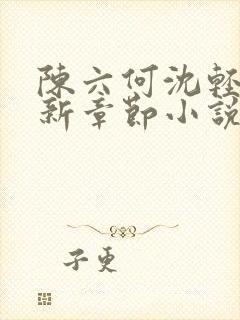 陳六何沈輕
新章節小說
子更